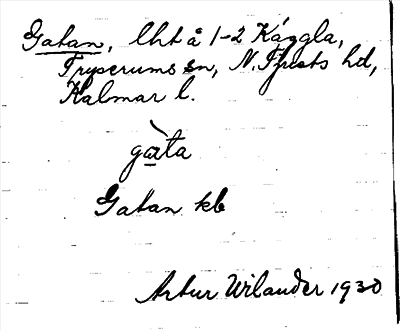 Gatan, lht å 1-2 Käggla,
Tryserums sn, N. Tjusts hd,
Kalmar l.
gàta
Gatan kb
Artur Wilander 1930